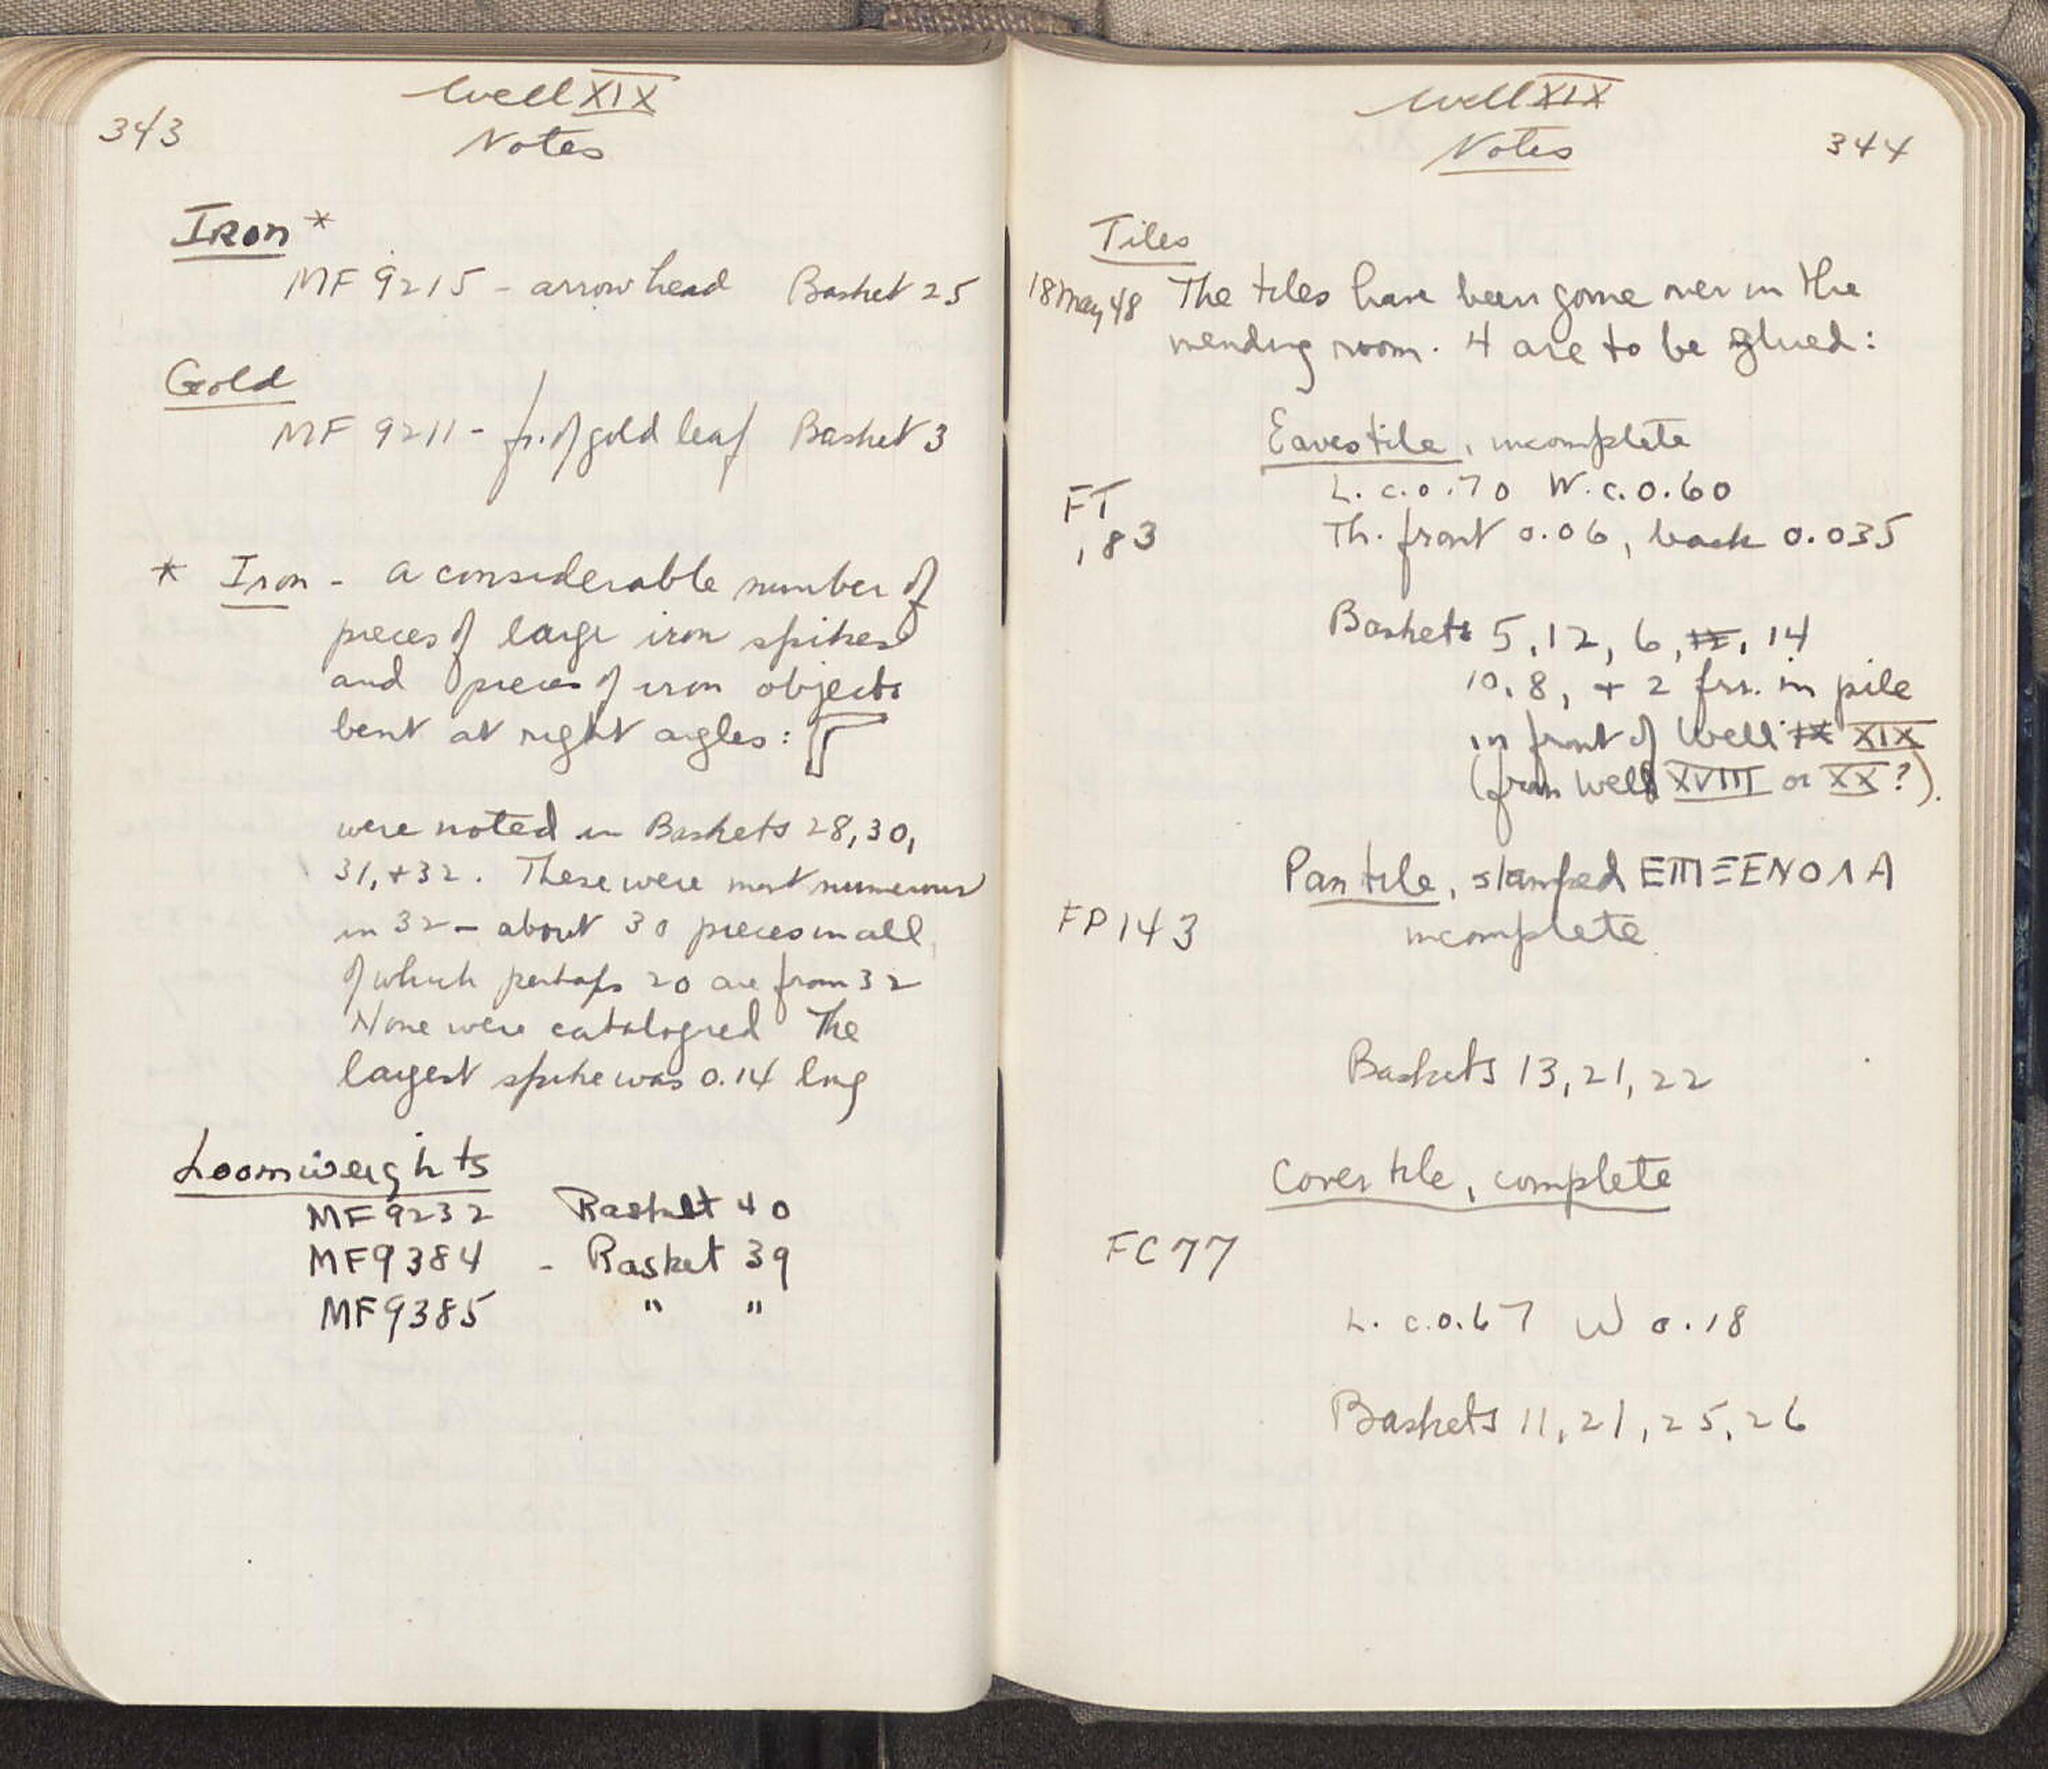 343
Well XIX
Notes
Iron *
MF 9215 - arrowhead Basket 25
Gold
MF 9211 - fr. of gold leaf Basket 3
* Iron - a considerable number of
pieces of large iron spikes
and pieces of iron objects
bent at right angles:
were noted in Baskets 28, 30,
31, + 32. These were most numerous
in 32 - about 30 pieces in all,
of which perhaps 20 are from 32
None were catalogued The
largest spike was 0.14 long
Loomweights
MF 9232 Basket 40
MF 9384 - Basket 39
MF 9385 " "
Well XIX
Notes
344
Tiles
18 May 48 The tiles have been gone over in the
mending room. 4 are to be glued:
Eaves tile, incomplete
L. c. 0.70 W. c. 0.60
FT
183
Th. front 0.06, back 0.035
Baskets 5, 12, 6, 12, 14
10, 8, + 2 frr. in pile
in front of Well IX XIX
(from Well XVIII or XX?).
Pan tile, stamped ΕΠΙΞΕΝΟΛΑ
FP 143
incomplete
Baskets 13, 21, 22
Cover tile, complete
FC 77
L. c. 0.67 W 0.18
Baskets 11, 21, 25, 26